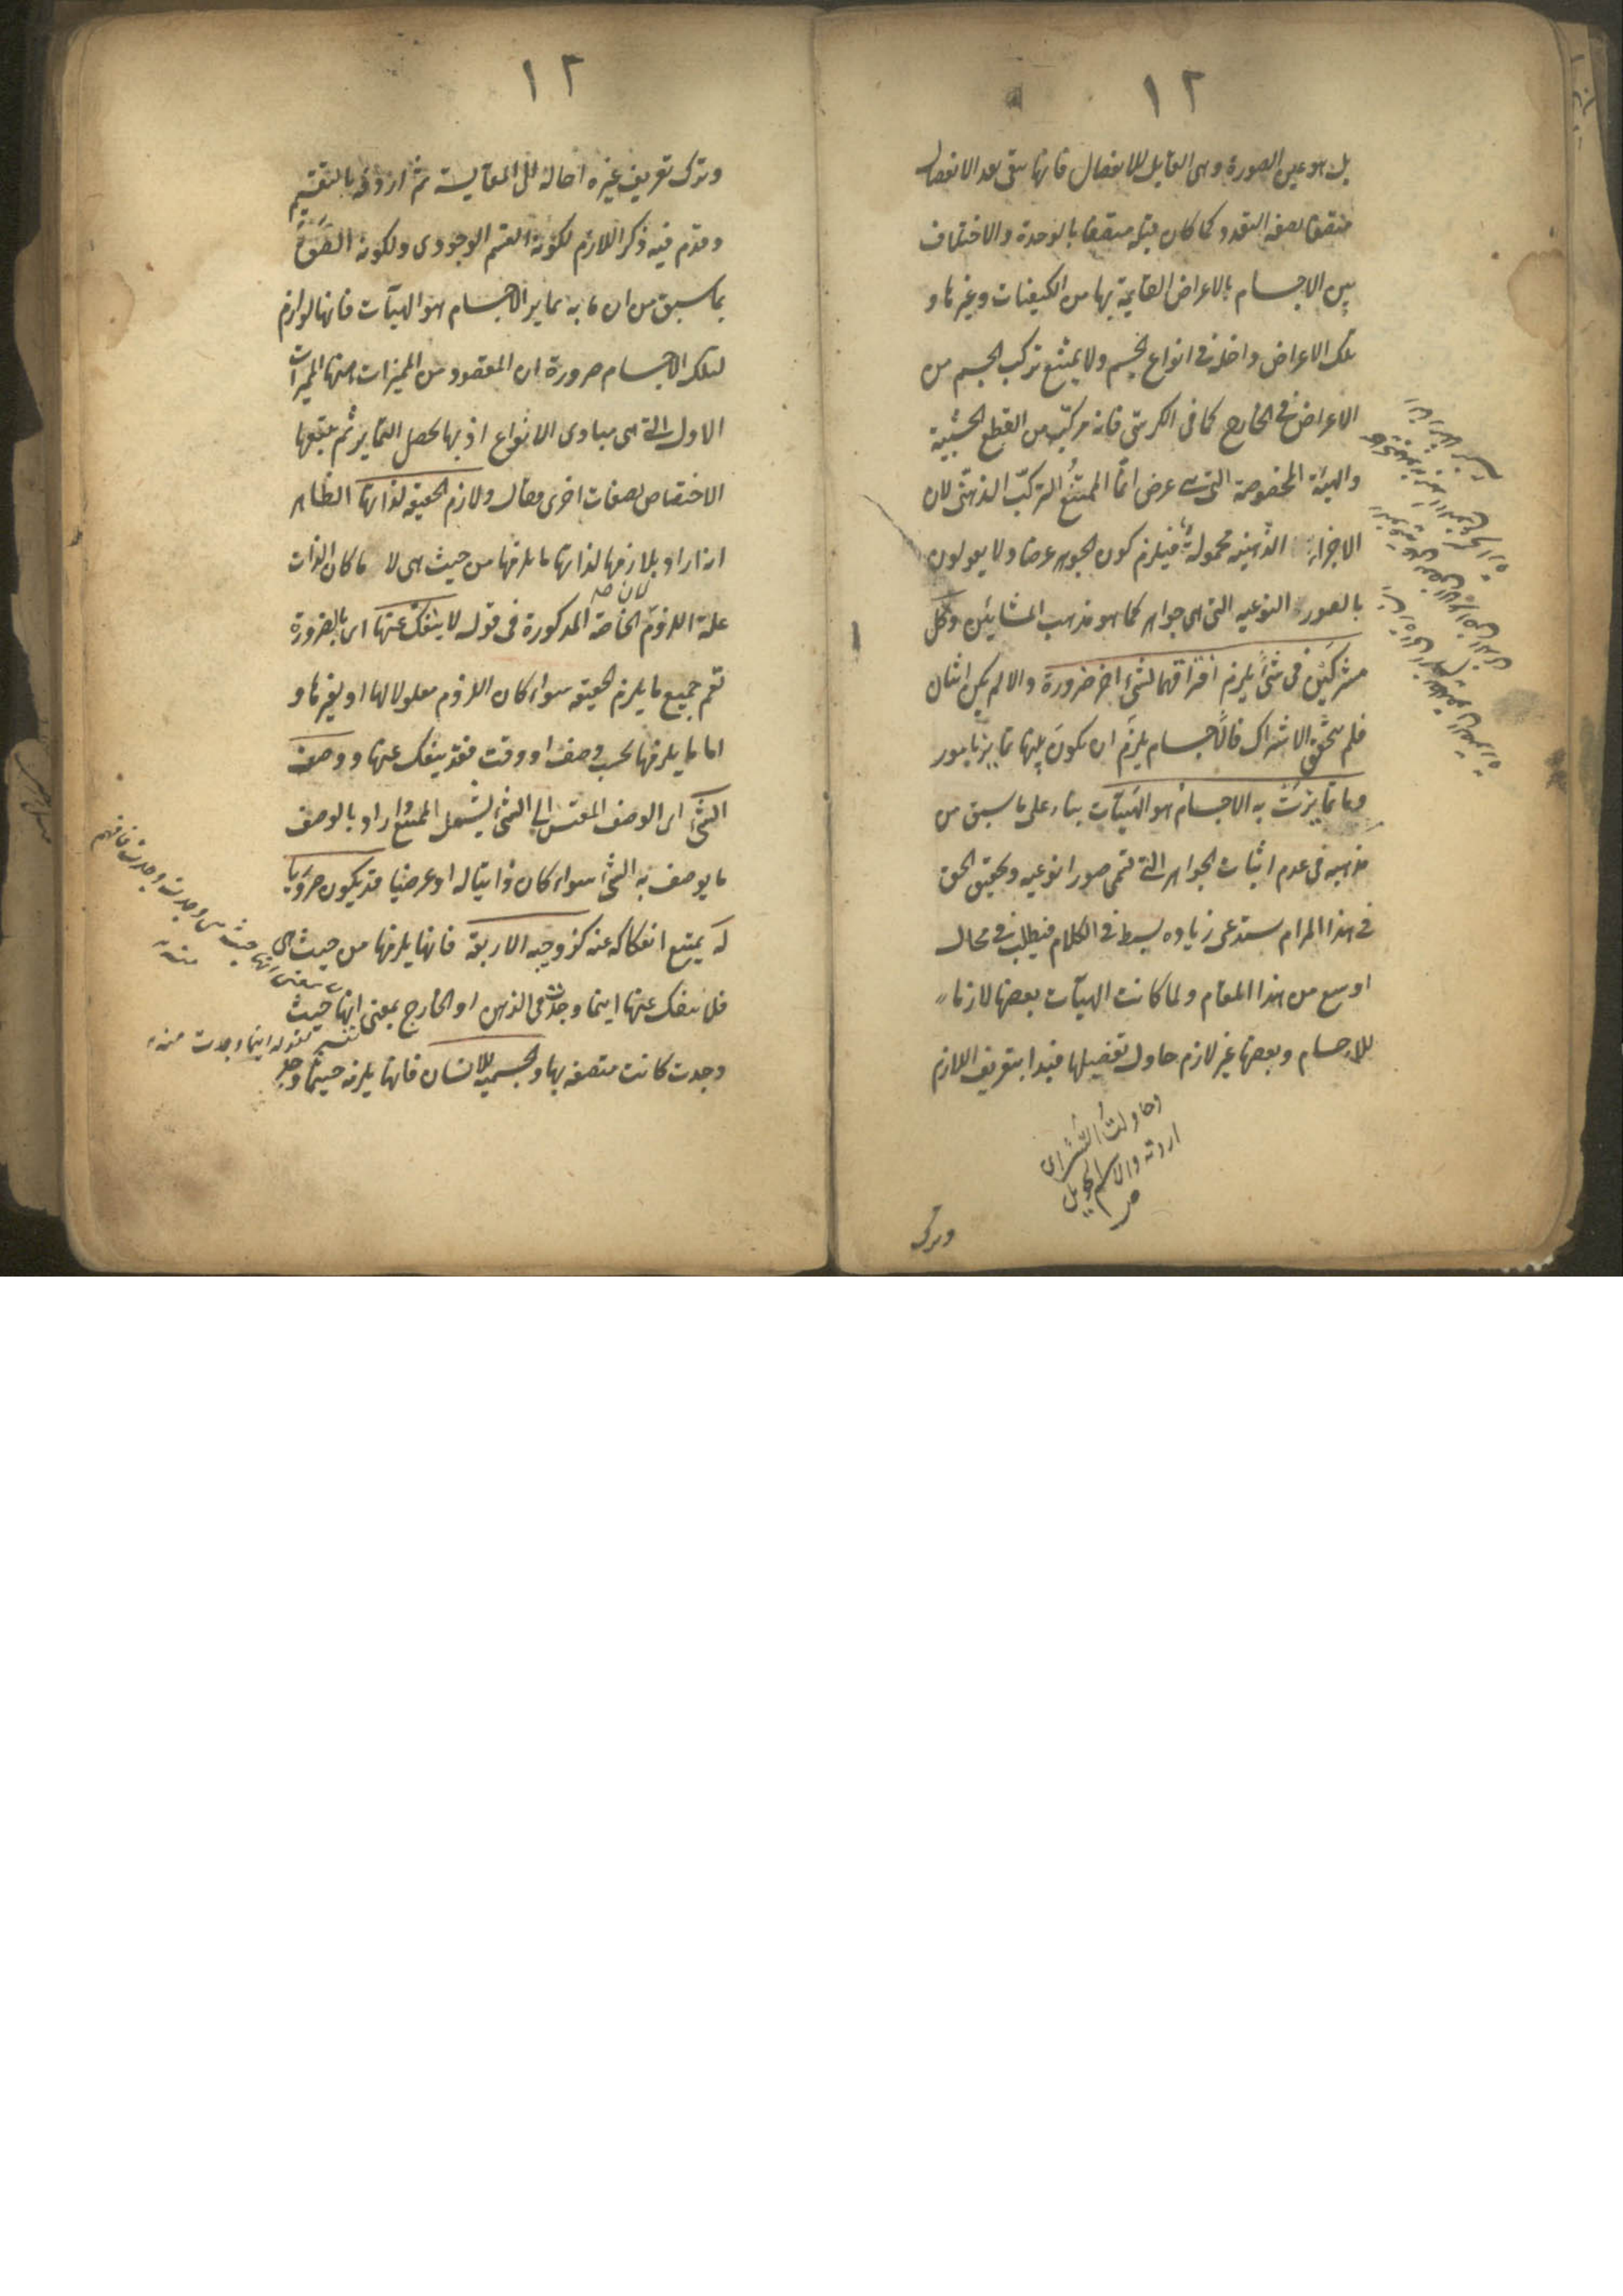 ١٢
بل هو عين الصورة وهى القابل للانفصال فانها تبقى بعد الانفصال
متصفا بصفة التعدد كما كان قبله متصفا بالوحدة والاختلاف
بين الاجسام بالاعراض القايمة بها من الكيفيات وغيرها و
تلك الاعراض داخلة فى انواع الجسم ولا يمتنع تركب الجسم من
الاعراض فى الخارج كما فى الكرسى فانه مركب من القطع الخشبية
والهيئة المخصوصة التى هى عرض انما الممتنع التركب الذهنى لان
الاجزاء الذهنية محمولة فيلزم كون الجوهر عرضا ولا يقولون
بالصور النوعيه التى هى جواهر كما هو مذهب المشائين وكل
مشتركين فى شئ يلزم افتراقهما لشئ اخر ضرورة والا لم يكن اثنان
فلم يتحقق الاشتراك فالاجسام يلزم ان يكون بينها تمايز بامور
وما تمايزت به الاجسام هو الهيآت بناء على ما سبق من
مذهبه فى عدم اثبات الجواهر التى تسمى صورا نوعيه وتحقيق الحق
فى هذا المرام يستدعى زياده بسط فى الكلام فيطلب فى محال
اوسع من هذا المقام ولما كانت الهيآت بعضها لازما
للاجسام وبعضها غير لازم حاول تفصيلها فبدا بتعريف اللازم
وحاولت الشئ اى
اردته والاسم الحويل
ص
وترك
١٢
وترك تعريف غيره احالة الى المقايسة ثم اردفه بالتقسيم
وقدم فيه ذكر اللازم لكونه القسم الوجودى ولكونه الصق
بما سبق من ان ما به تمايز الاجسام هو الهيآت فانها لوازم
لتلك الاجسام ضرورة ان المقصود من المميزات منها المميزات
الاول التى هى مبادى الانواع اذ بها يحصل التمايز ثم يتبعها
الاختصاص بصفات اخرى فقال ولازم الحقيقة لذاتها الظاهر
انه اراد بلازمها لذاتها ما يلزمها من حيث هى لا ما كان الذات
لان
علة اللزوم الخاصة المذكورة فى قوله لا ينفك عنها اى بالضرورة
تعم جميع ما يلزم الحقيقة سواء كان اللزوم معلولا لها او لغيرها و
اما ما يلزمها بحسب وصف او وقت فقد ينفك عنها ووصف
الشئ اى الوصف المقيس الى الشئ ليشمل الممتنع اراد بالوصف
ما يوصف به الشئ سواء كان ذاتيا له او عرضيا قد يكون ضروريا
له يمتنع انفكاكه عنه كزوجية الاربعة فانها يلزمها من حيث هى
فلا تنفك عنها اينما وجدت فى الذهن او الخارج بمعنى انها حيث
وجدت كانت متصفة بها وكجسمية للانسان فانها يلزمه حيثما وجد
تفسير لقوله اينما وجدت منه